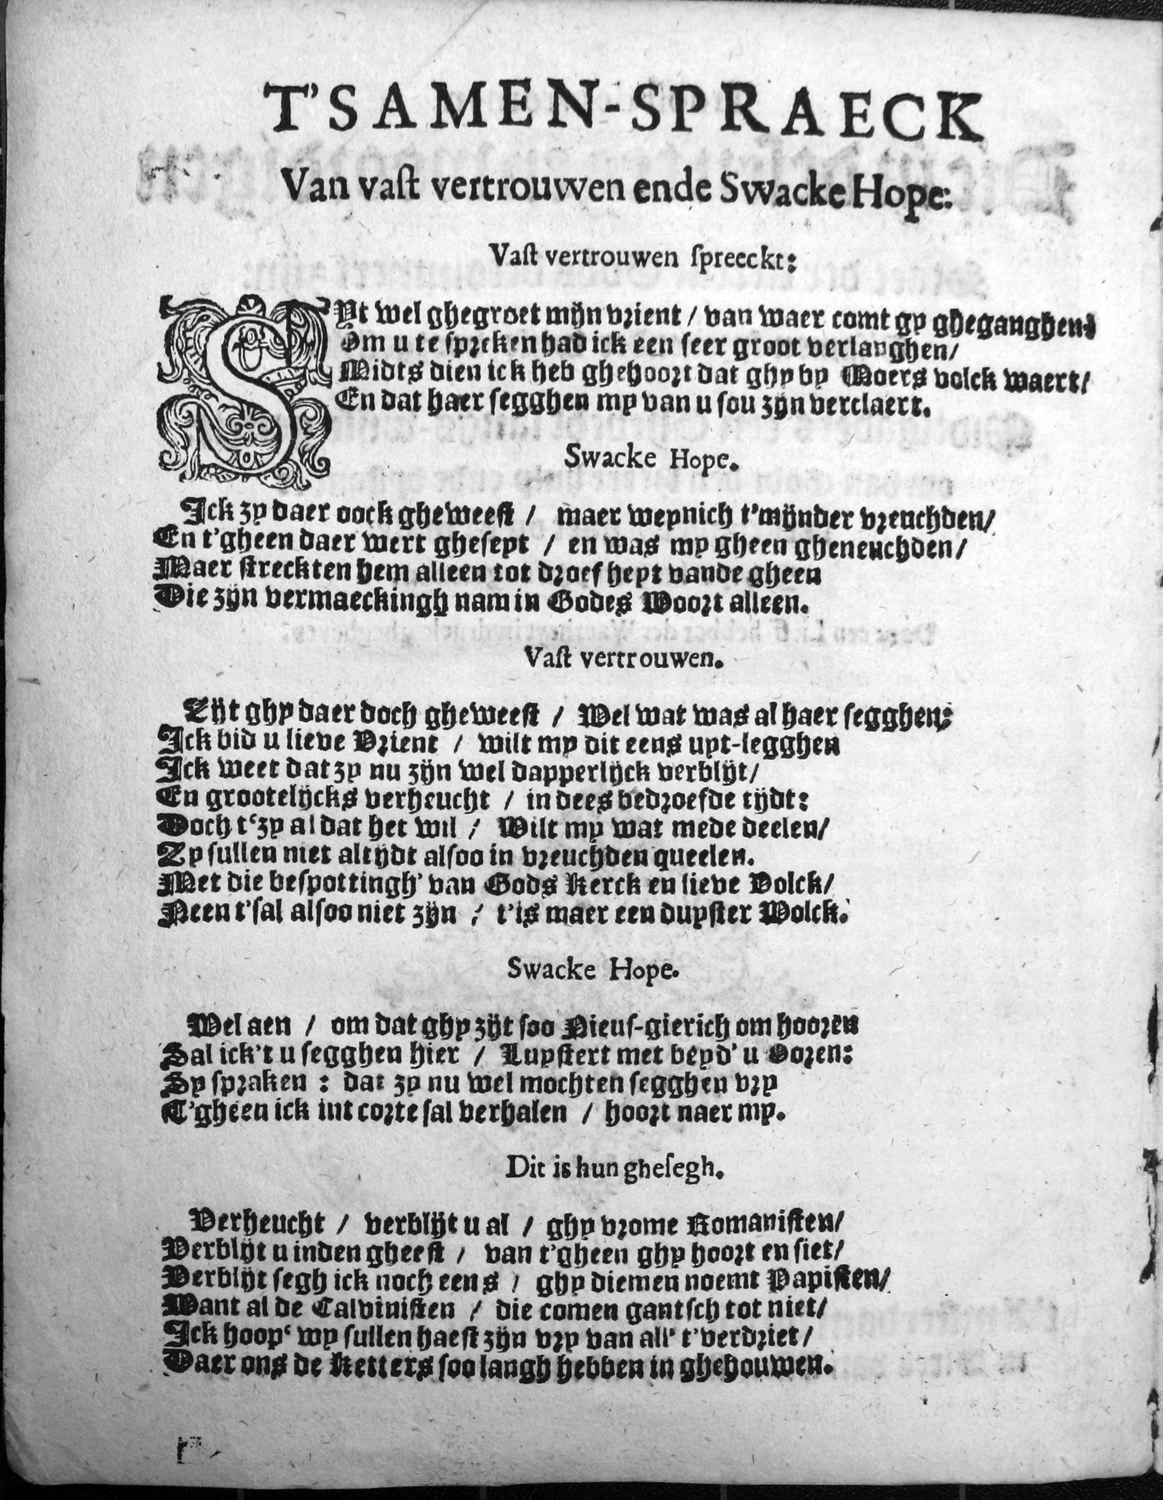 T'SAMEN-SPRAECK
Van vast vertrouwen ende Swacke Hope:
Vast vertrouwen spreeckt:
SYt wel ghegroet mijn vrient / van waer comt gy gheganghen?
Om u te spreken had ick een seer groot verlanghen/
Midts dien ick heb ghehoort dat ghy by Moers volck waert/
En dat haer segghen my van u sou zijn verclaert.
Swacke Hope.
Ick zy daer oock gheweest / maer weynich t'mijnder vreuchden/
En t'gheen daer wert gheseyt / en was my gheen gheneuchden/
Maer streckten hem alleen tot droefheyt vande gheen
Die zijn vermaeckingh nam in Godes Woort alleen.
Vast vertrouwen.
Zijt ghy daer doch gheweest / Wel wat was al haer segghen;
Ick bid u lieve Vrient / wilt my dit eens uyt-legghen
Ick weet dat zy nu zijn wel dapperlijck verblijt/
En grootelijcks verheucht / in dees bedroefde tijdt:
Doch t'zy al dat het wil / Wilt my wat mede deelen/
Zy sullen niet altijdt alsoo in vreuchden queelen.
Met die bespottingh' van Gods Kerck en lieve Volck/
Neen t'sal alsoo niet zijn / t'is maer een duyster Wolck.
Swacke Hope.
Wel aen / om dat ghy zijt soo Nieus-gierich om hooren
Sal ick't u segghen hier / Luystert met beyd' u Ooren:
Sy spraken : dat zy nu wel mochten segghen vry
T'gheen ick int corte sal verhalen / hoort naer my.
Dit is hun ghesegh.
Verheucht / verblijt u al / ghy vrome Romanisten/
Verblijt u inden gheest / van t'gheen ghy hoort en siet/
Verblijt segh ick noch eens / ghy diemen noemt Papisten/
Want al de Calvinisten / die comen gantsch tot niet/
Ick hoop' wy sullen haest zijn vry van all' t'verdriet/
Daer ons de Ketters soo langh hebben in ghehouwen.